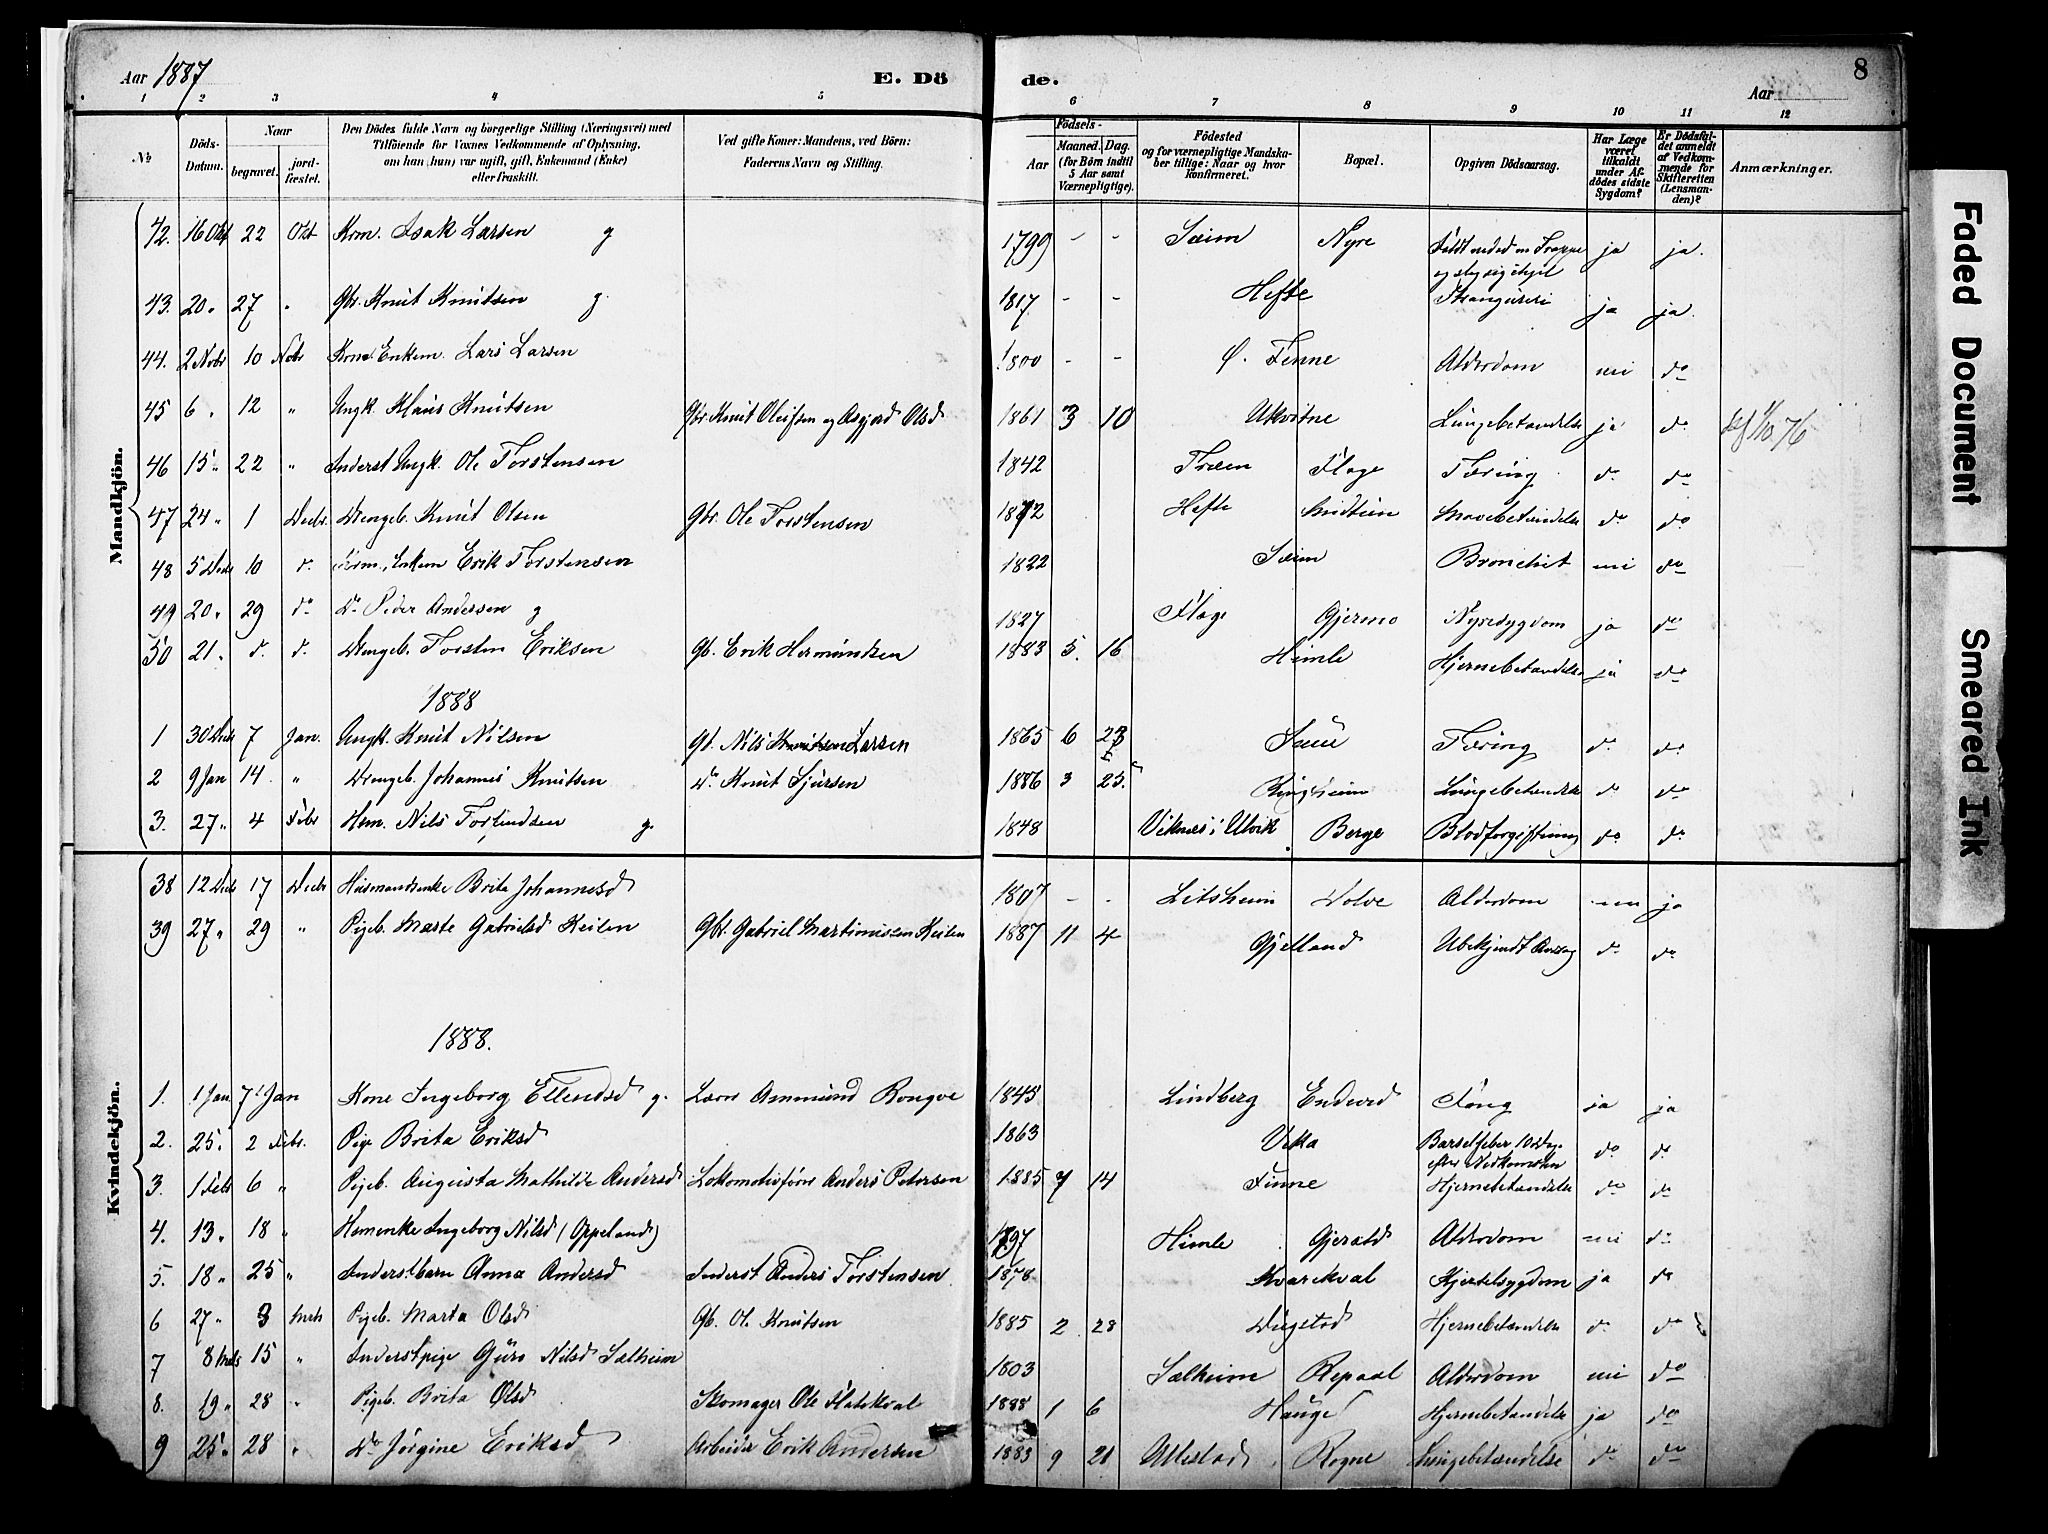 Aar 1887 E. Dö de. Aar 8
1 2 3 4 5 6 7 8 9 10 11 12
No. Döds-Datum. Naar begravet. jord-fæstet. Den Dödes fulde Navn og borgerlige Stilling (Næringsvei) med Tilföiende for Voxnes Vedkommende af Oplysning, om han (hun) var ugift, gift, Enkemand (Enke) eller fraskilt. Ved gifte Koner: Mandens, ved Börn: Faderens Navn og Stilling. Födsels- Aar Maaned. Dag. (for Börn indtil 5 Aar samt Værnepligtige). Födested og for værnepligtige Mandska-ber tillige: Naar og hvor Konfirmeret. Bopæl. Opgiven Dödsaarsag. Har Læge været tilkaldt under Af-dödes sidste Sygdom? Er Dödsfal-det anmeldt af Vedkom-mende for Skifteretten (Lensman-den)? Anmærkninger.
Mandkjön.
42. 16 Okt 22 Okt Isak Larsen g 1799 - - Sæim Nyre Faldt ned ad en Trappe og slog sig ihjel ja ja.
43. 20 „ 27 „ Gbr. Knut Knutsen g. 1817 - - Hefte Stranguri ja ja.
44. 2 Nobr 10 Nobr Enkem. Lars Larsen 1800 - - Ø. Finne Alderdom nei do
45 6 „ 12 „ Ungk. Klaus Knutsen Gbr. Knut Oleifsen og Asgjerd Olsd 1861 3 10 Ukvitne Lungebetændelse ja do
46 15 „ 22 „ Inderst Ungk. Ole Torstensen 1842 Træen Flage Tæring do do
47 24 „ 1 Decbr Drengeb. Knut Olsen Gbr. Ole Torstensen 1872 Hefte Midtun Mavebetændelse do do
48 5 Decb 10 do Enkem Erik Torstensen 1822 Sæim Bronchit nei do
49 20 „ 29 do Do Peder Andersen g 1827 Flage Gjermo Nyresygdom ja do
50 21 „ do do Drengeb. Torsten Eriksen Gb. Erik Hermundsen 1883 5. 16 Himle Hjernebetændelse ja do
1888
1 30 Decb 7 Jan. Ungk. Knut Nilsen Gb. Nils Knutsen Larsen 1865 6 23 Saue Tæring do do
2 9 Jan 14. „ Drengeb. Johannes Knutsen Do Knut Sjursen 1886 3 25. Ringheim Lungebetændelse do do
3. 27 „ 4 Febr Hsm. Nils g. 1848 Viknes i Ulvik Berge Blodforgiftning do do
Kvindekjön.
38 12 Decb 17 Decbr Husmandsenke Brita Johannesd 1807 - - Leitsheim Dolve Alderdom nei ja
39 27 „ 29 „ Pigeb. Marte Gabrielsd Keilen Gbr. Gabriel Martinussen Keilen 1887 11 4 Gjelland Ubekjendt Aarsag do do
1888.
1. 1 Jan. 7 Jan Kone Ingeborg Ellendsd g. Lærer Ammund Rongve 1845 Lindberg Endeved ja ja
2. 25. 2 Febr. Pige Brita Eriksd 1863 Veka Barselfeber 10 Dage efter Nedkomsten do do
3. 1 Feb 6 „ Pigeb. Augusta Mathilde Andersd Lokomotivförer Anders Petersen 1885 7 14 Finne Hjernebetændelse do do
4. 13 „ 18 „ Hsmenke Ingeborg Nilsd (Oppeland) 1797 Himle Gjerald Alderdom nei do
5. 18 „ 25 „ Inderstbarn Anna Andersd Inderst Anders Torstensen 1878 Kvarekval Hjertesygdom ja do
6 27 „ 3 Mrts Pigeb. Marta Olsd Gb. Ole Knutsen 1885 2 28 Dugstad Hjernebetændelse do do
7 8 Mrts 15 „ Inderstpige Guro Nilsd Sælheim 1803 Sælheim Repaal Alderdom nei do
8. 19 „ 28 „ Pigeb. Brita Olsd Skomager Ole Flatekval 1888 1 6 Hauge Hjernebetændelse ja do
9 25 „ 28 „ Do Jörgine Eriksd Arbeider Erik Andersen 1883 9 21 Ullestad Rogne Lungebetændelse do do
Faded Document
Smeared Ink